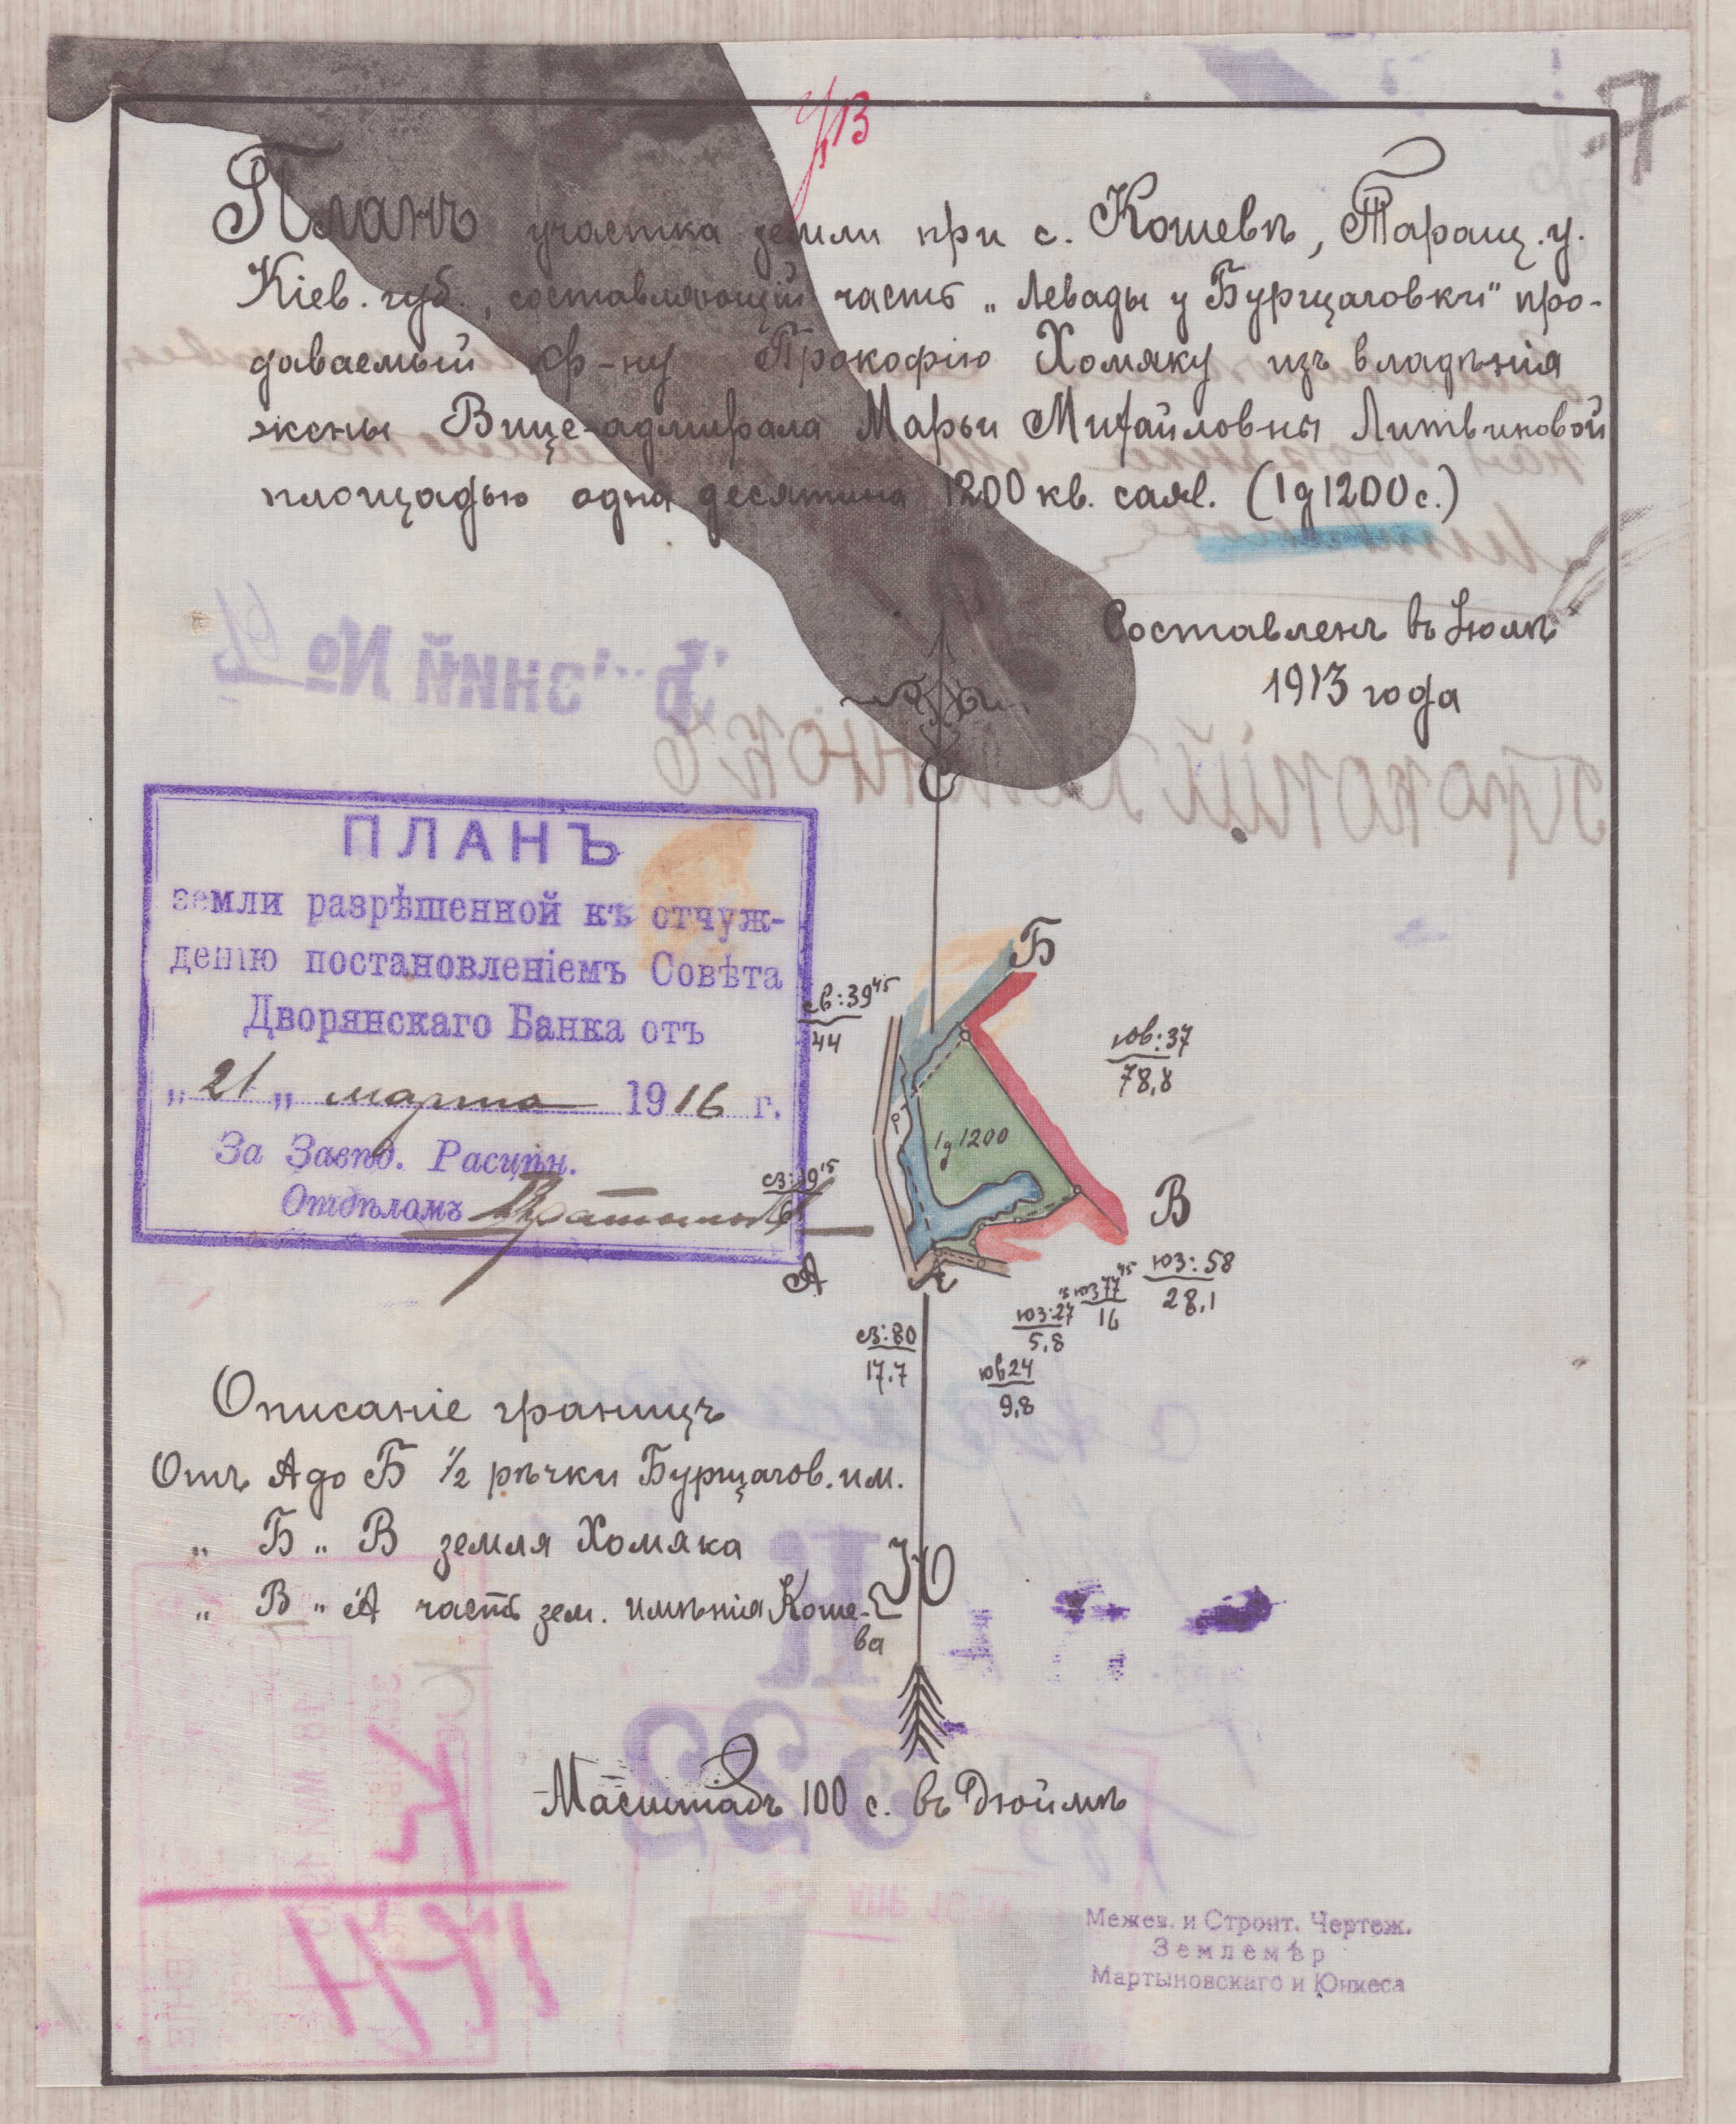 У 13
7
Планъ участка земли при с. Кошевѣ, Таращ. у.
Кіев. губ., составляющій часть „Левады у Бурщаговки" про-
даваемый кр-ну Прокофію Хомяку изъ владѣнія
жены Вице-адмирала Марьи Михайловны Литвиновой
площадью одна десятина 1200 кв. саж. (1д 1200 с.)
Составленъ въ Іюлѣ
1913 года
С
ПЛАНЪ
земли разрѣшенной къ отчуж-
денію постановленіемъ Совѣта
Дворянскаго Банка отъ
„21„ марта 1916 г.
За Завѣд. Расцѣн.
Отдѣломъ
Б
св:39⁴⁵
44
юв:37
78,8
1д 1200
сз:19¹⁵
В
А
А
юз:58
28,1
юз 77⁴⁵
16
юз:27
5,8
юв 24
9,8
сз:80
17,7
Описаніе границъ
Отъ А до Б ½ рѣчки Бурщагов. им.
„ Б „ В земля Хомяка
„ В „ А часть зем. имѣнія Коше-
ва
Ю
Масштабъ 100 с. въ Дюймѣ
Межев. и Строит. Чертеж.
Землемѣр
Мартыновскаго и Юнкеса